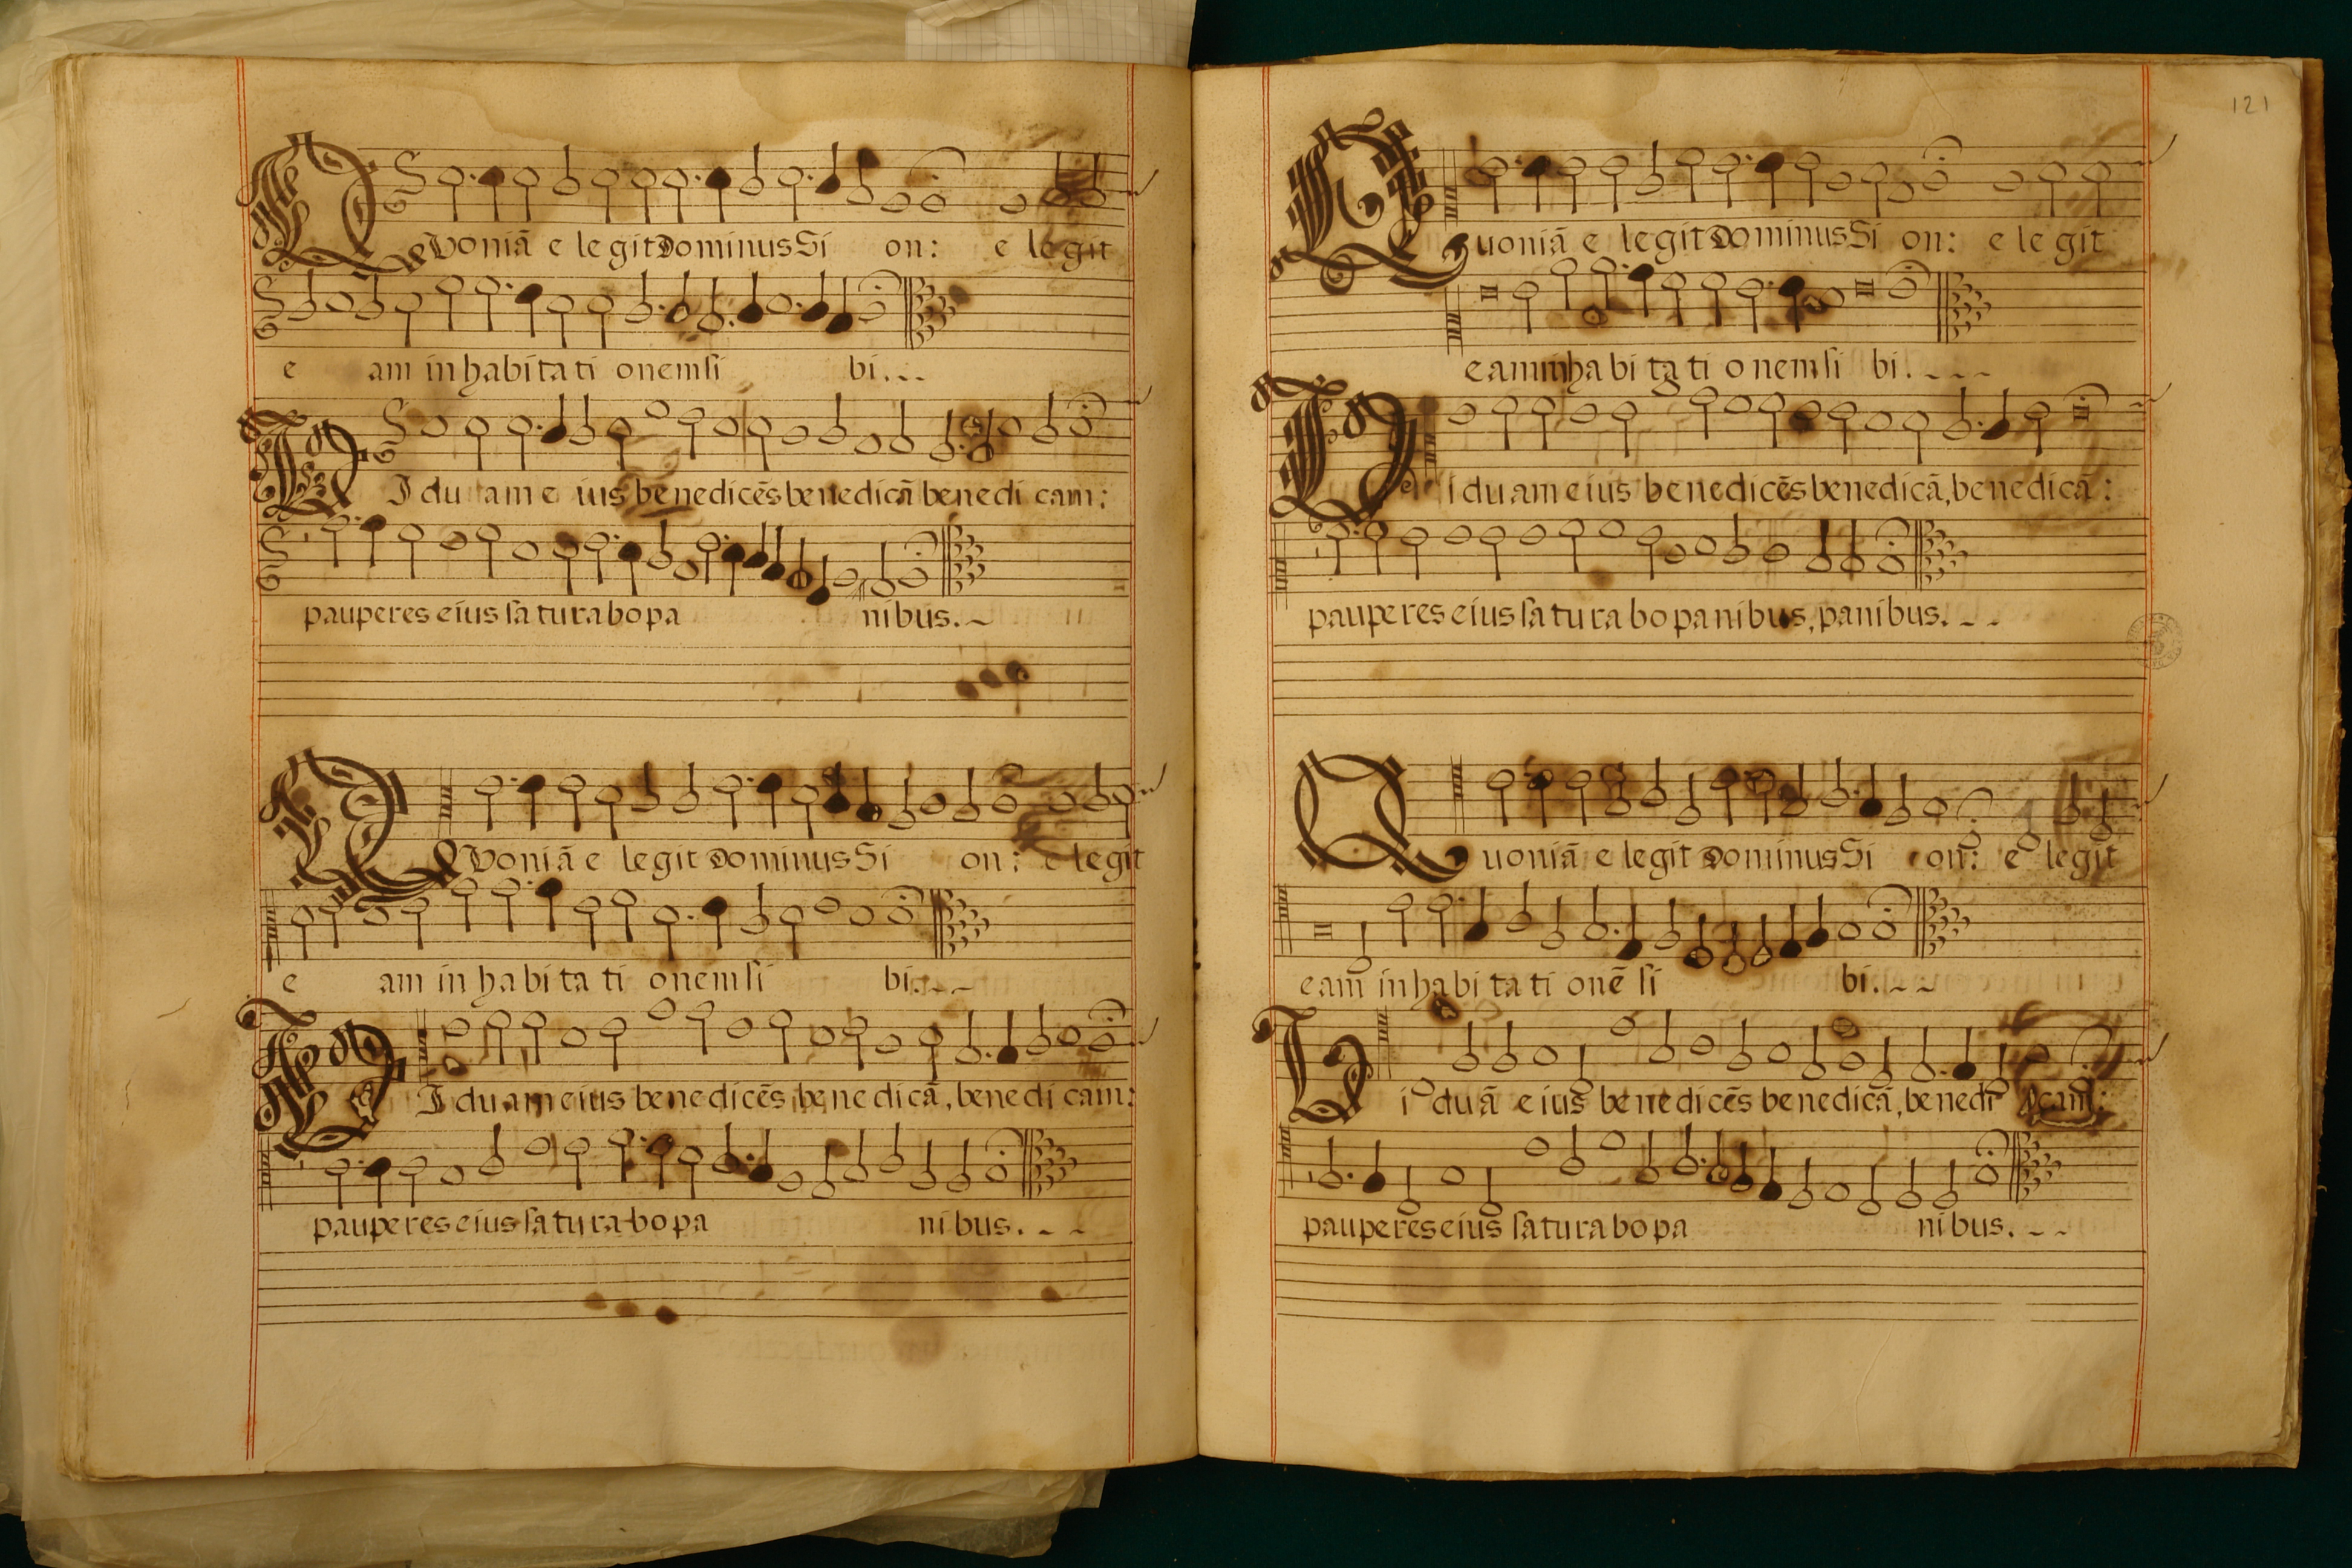 QVoniā e legit Dominus Si on: e legit
e am in habita ti onem si bi.
VIduam e ius benedicēs benedicā benedi cam:
pauperes eius saturabo pa nibus.
QVoniā e legit Dominus Si on: e legit
e am in habita ti onem si bi.
VIduam eius benedicēs benedicā, benedi cam:
pauperes eius saturabo pa nibus.
121
Quoniā e legit Dominus Si on: e legit
eam inhabitati onem si bi.
Viduam eius benedicēs benedicā, benedicā:
pauperes eius saturabo panibus, panibus.
Quoniā e legit Dominus Si on: e legit
eam inhabitati onē si bi.
Viduā eius benedicēs benedicā, benedi cam:
pauperes eius saturabo pa nibus.